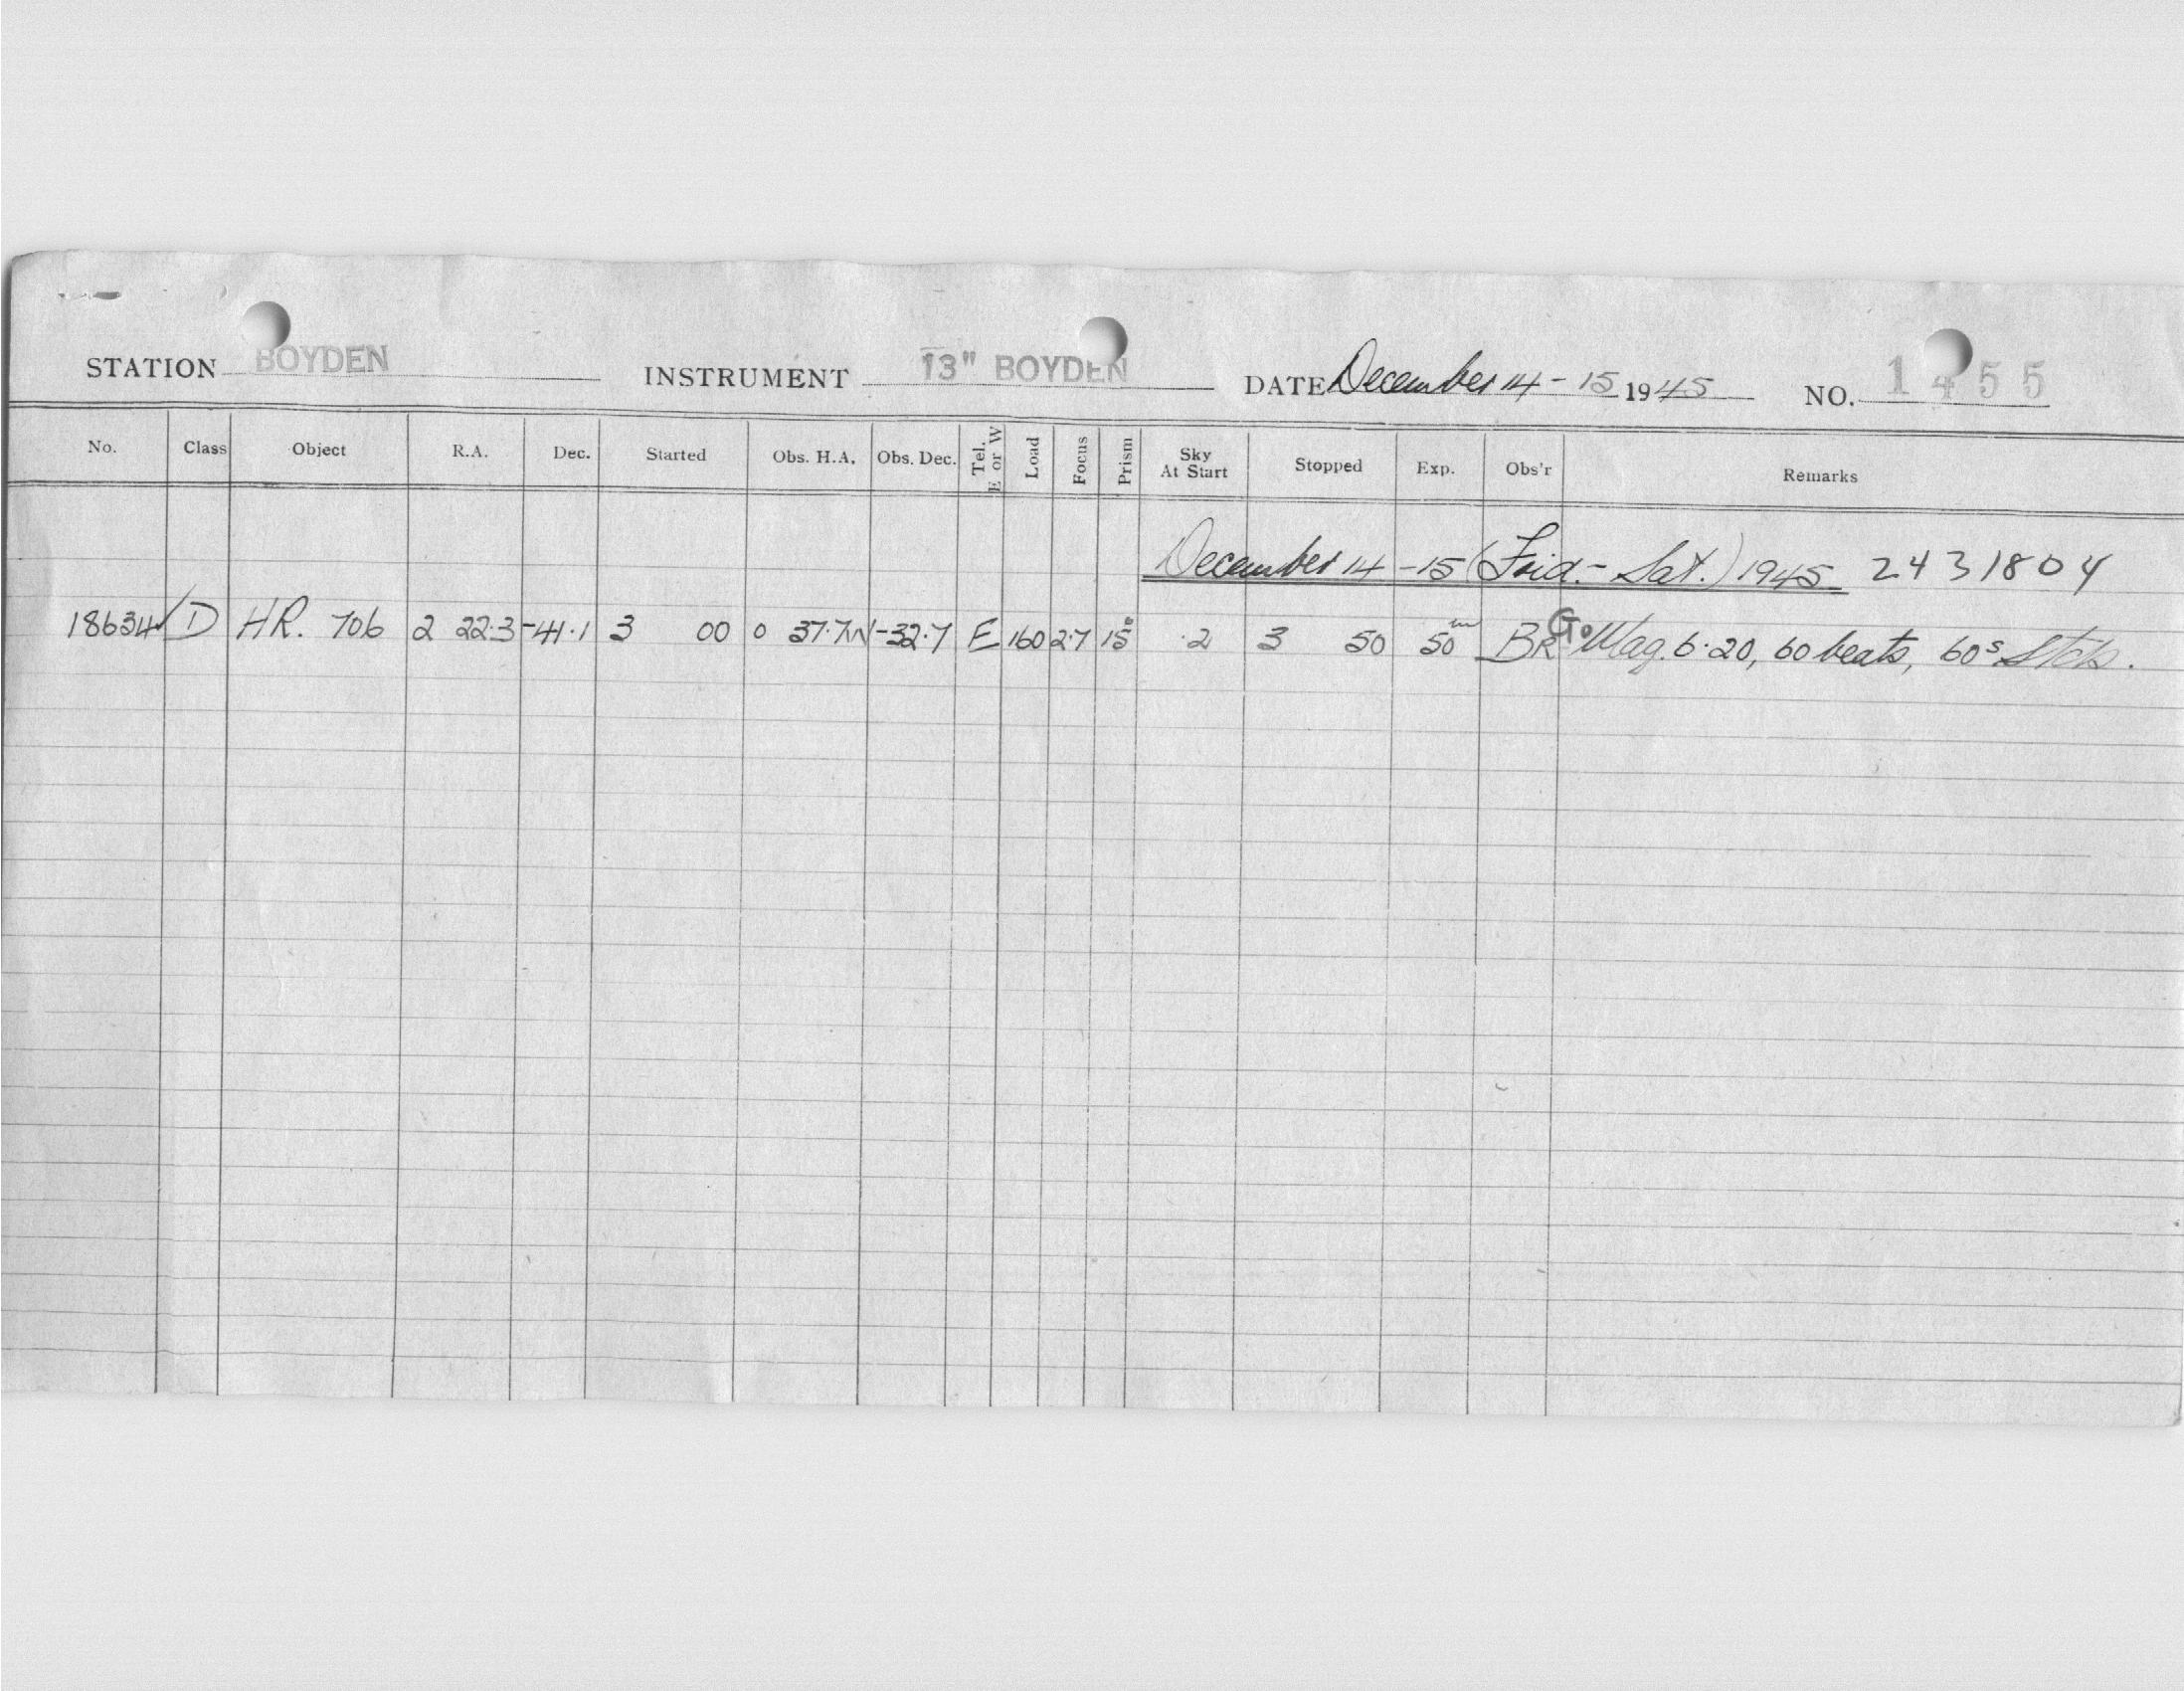 STATION BOYDEN INSTRUMENT 13" BOYDEN DATE December 14-15 1945 NO. 1455
No. Class Object R.A. Dec. Started Obs. H.A. Obs. Dec. Tel. E or W Load Focus Prism Sky At Start Stopped Exp. Obs'r Remarks
December 14-15 (Frid.- Sat.) 1945 2431804
18634 D HR. 706 2 22.3 -41.1 3 00 0 37.7W -32.7 E 160 2.7 15° .2 3 50 50m BR G0 Mag. 6.20, 60 beats, 60s Stds.